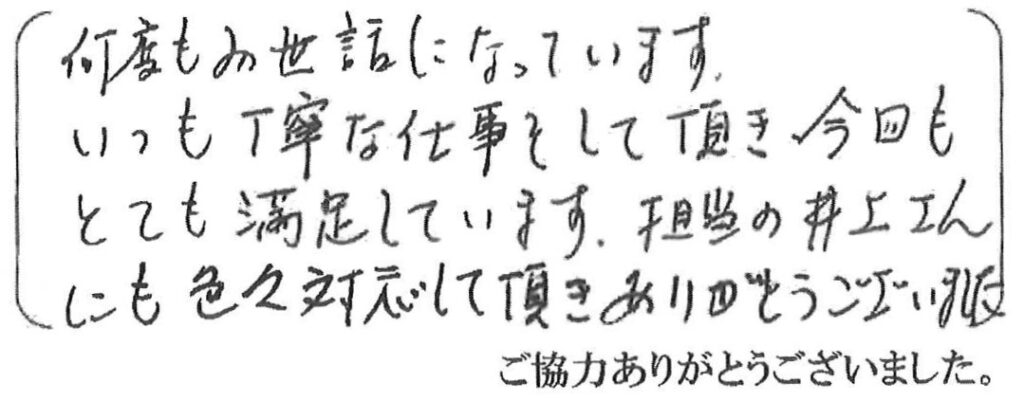 何度もお世話になっています.
いつも丁寧な仕事をして頂き、今回も
とても満足しています. 担当の井上さん
にも色々対応して頂きありがとうございました
ご協力ありがとうございました。